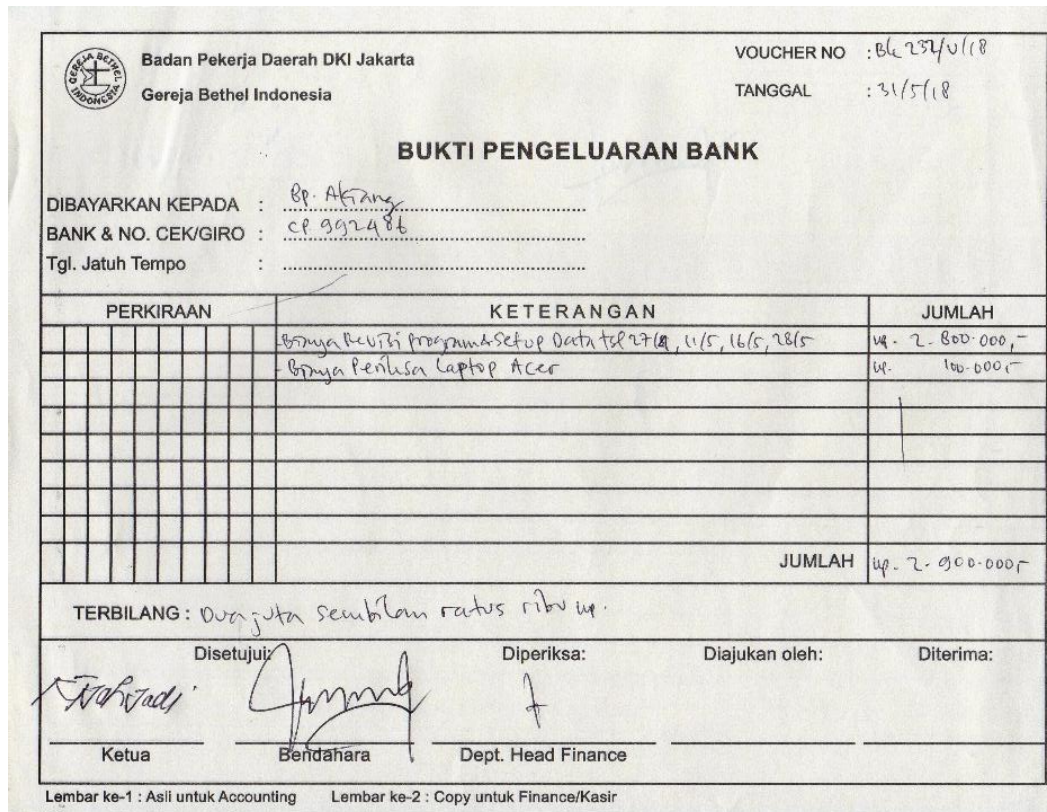 GEREJA BETHEL INDONESIA
Badan Pekerja Daerah DKI Jakarta
Gereja Bethel Indonesia
VOUCHER NO : Bk 232/V/18
TANGGAL : 31/5/18
BUKTI PENGELUARAN BANK
DIBAYARKAN KEPADA : Bp. 
BANK & NO. CEK/GIRO : CP 992486
Tgl. Jatuh Tempo :
PERKIRAAN KETERANGAN JUMLAH
- Biaya Revisi program & Setup Data tgl 27/4, 11/5, 16/5, 28/5 Rp. 2.800.000,-
- Biaya Periksa Laptop Acer Rp. 100.000,-
JUMLAH Rp. 2.900.000,-
TERBILANG : Dua juta sembilan ratus ribu rp.
Disetujui: Diperiksa: Diajukan oleh: Diterima:
Ketua Bendahara Dept. Head Finance
Lembar ke-1 : Asli untuk Accounting Lembar ke-2 : Copy untuk Finance/Kasir